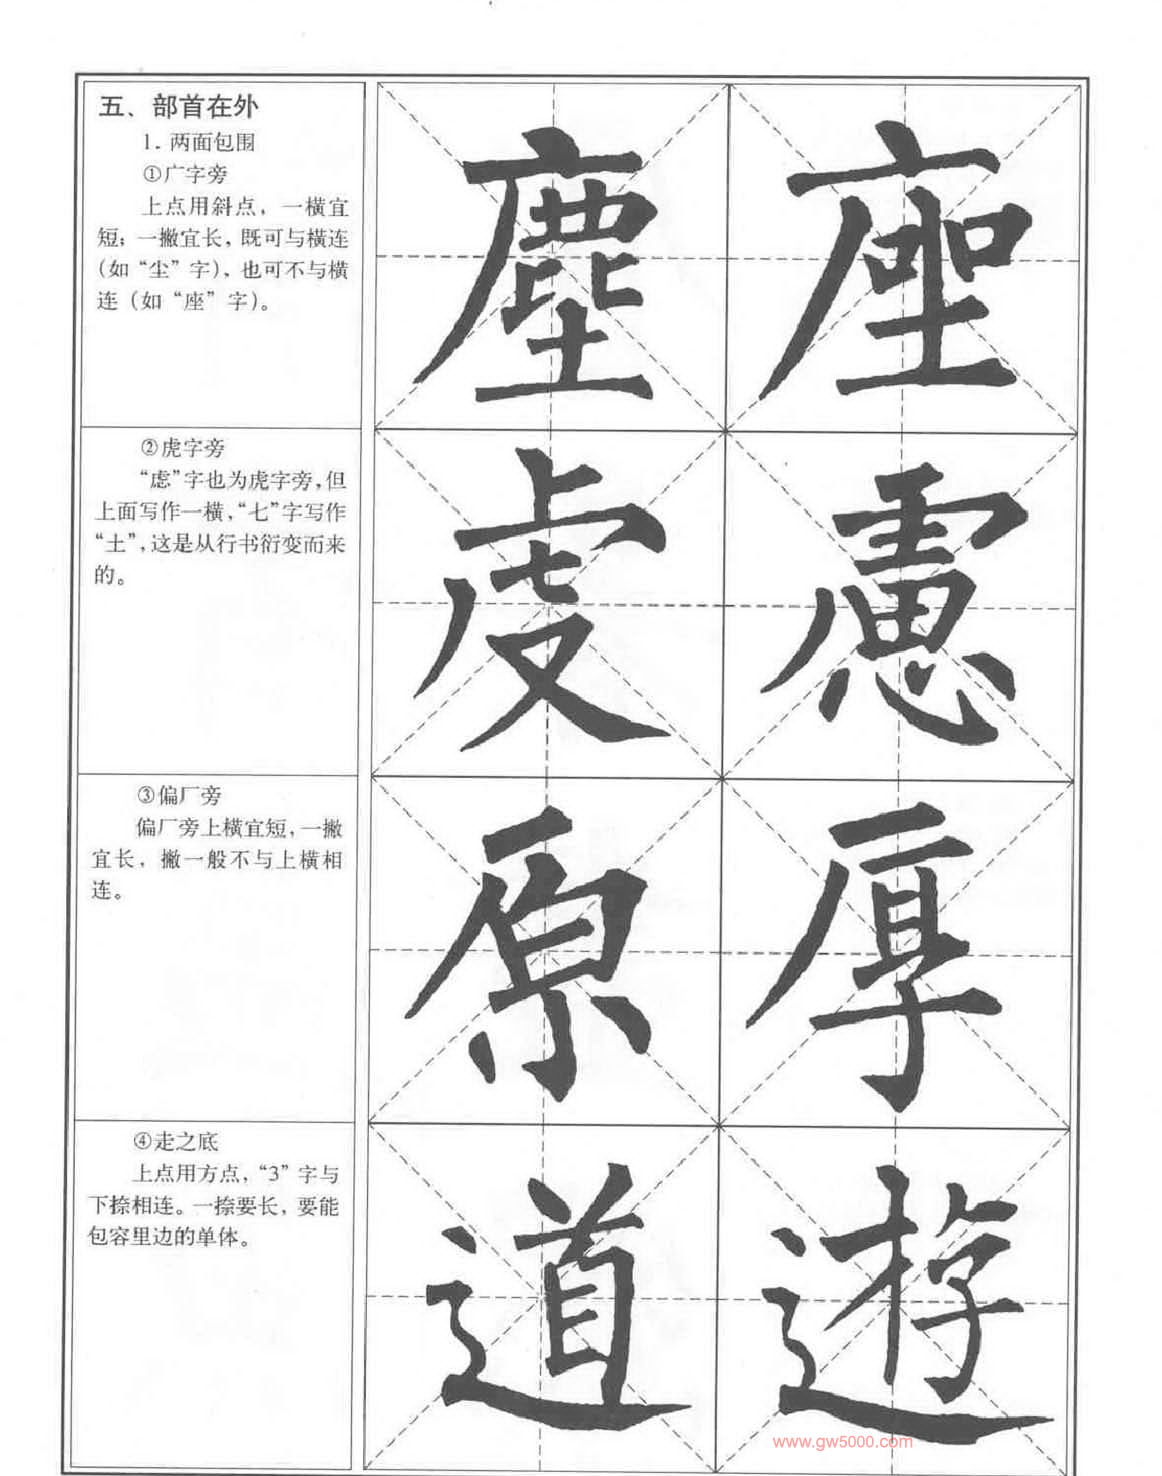 五、部首在外
1. 两面包围
①广字旁
上点用斜点，一横宜
短；一撇宜长，既可与横连
（如“尘”字），也可不与横
连（如“座”字）。
塵 座
②虎字旁
“虑”字也为虎字旁，但
上面写作一横，“七”字写作
“土”，这是从行书衍变而来
的。
虔 慮
③偏厂旁
偏厂旁上横宜短，一撇
宜长，撇一般不与上横相
连。
原 厚
④走之底
上点用方点，“3”字与
下捺相连。一捺要长，要能
包容里边的单体。
道 遊
www.gw5000.com